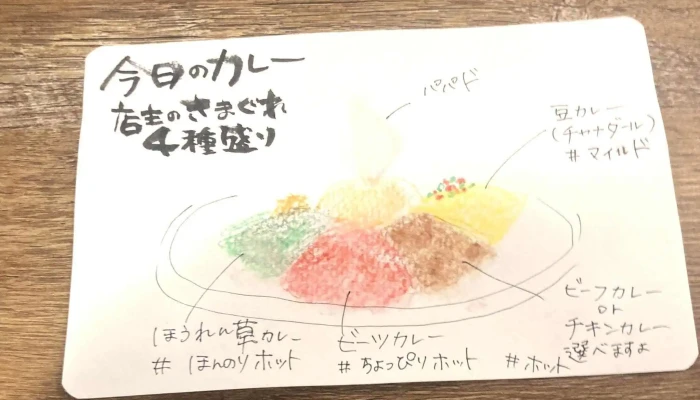 今日のカレー
店主のきまぐれ
4種盛り
パパド
豆カレー
(チャナダール)
#マイルド
ビーフカレー
or
チキンカレー
選べますよ
#ホット
ほうれん草カレー
# ほんのりホット
ビーツカレー
#ちょっぴりホット